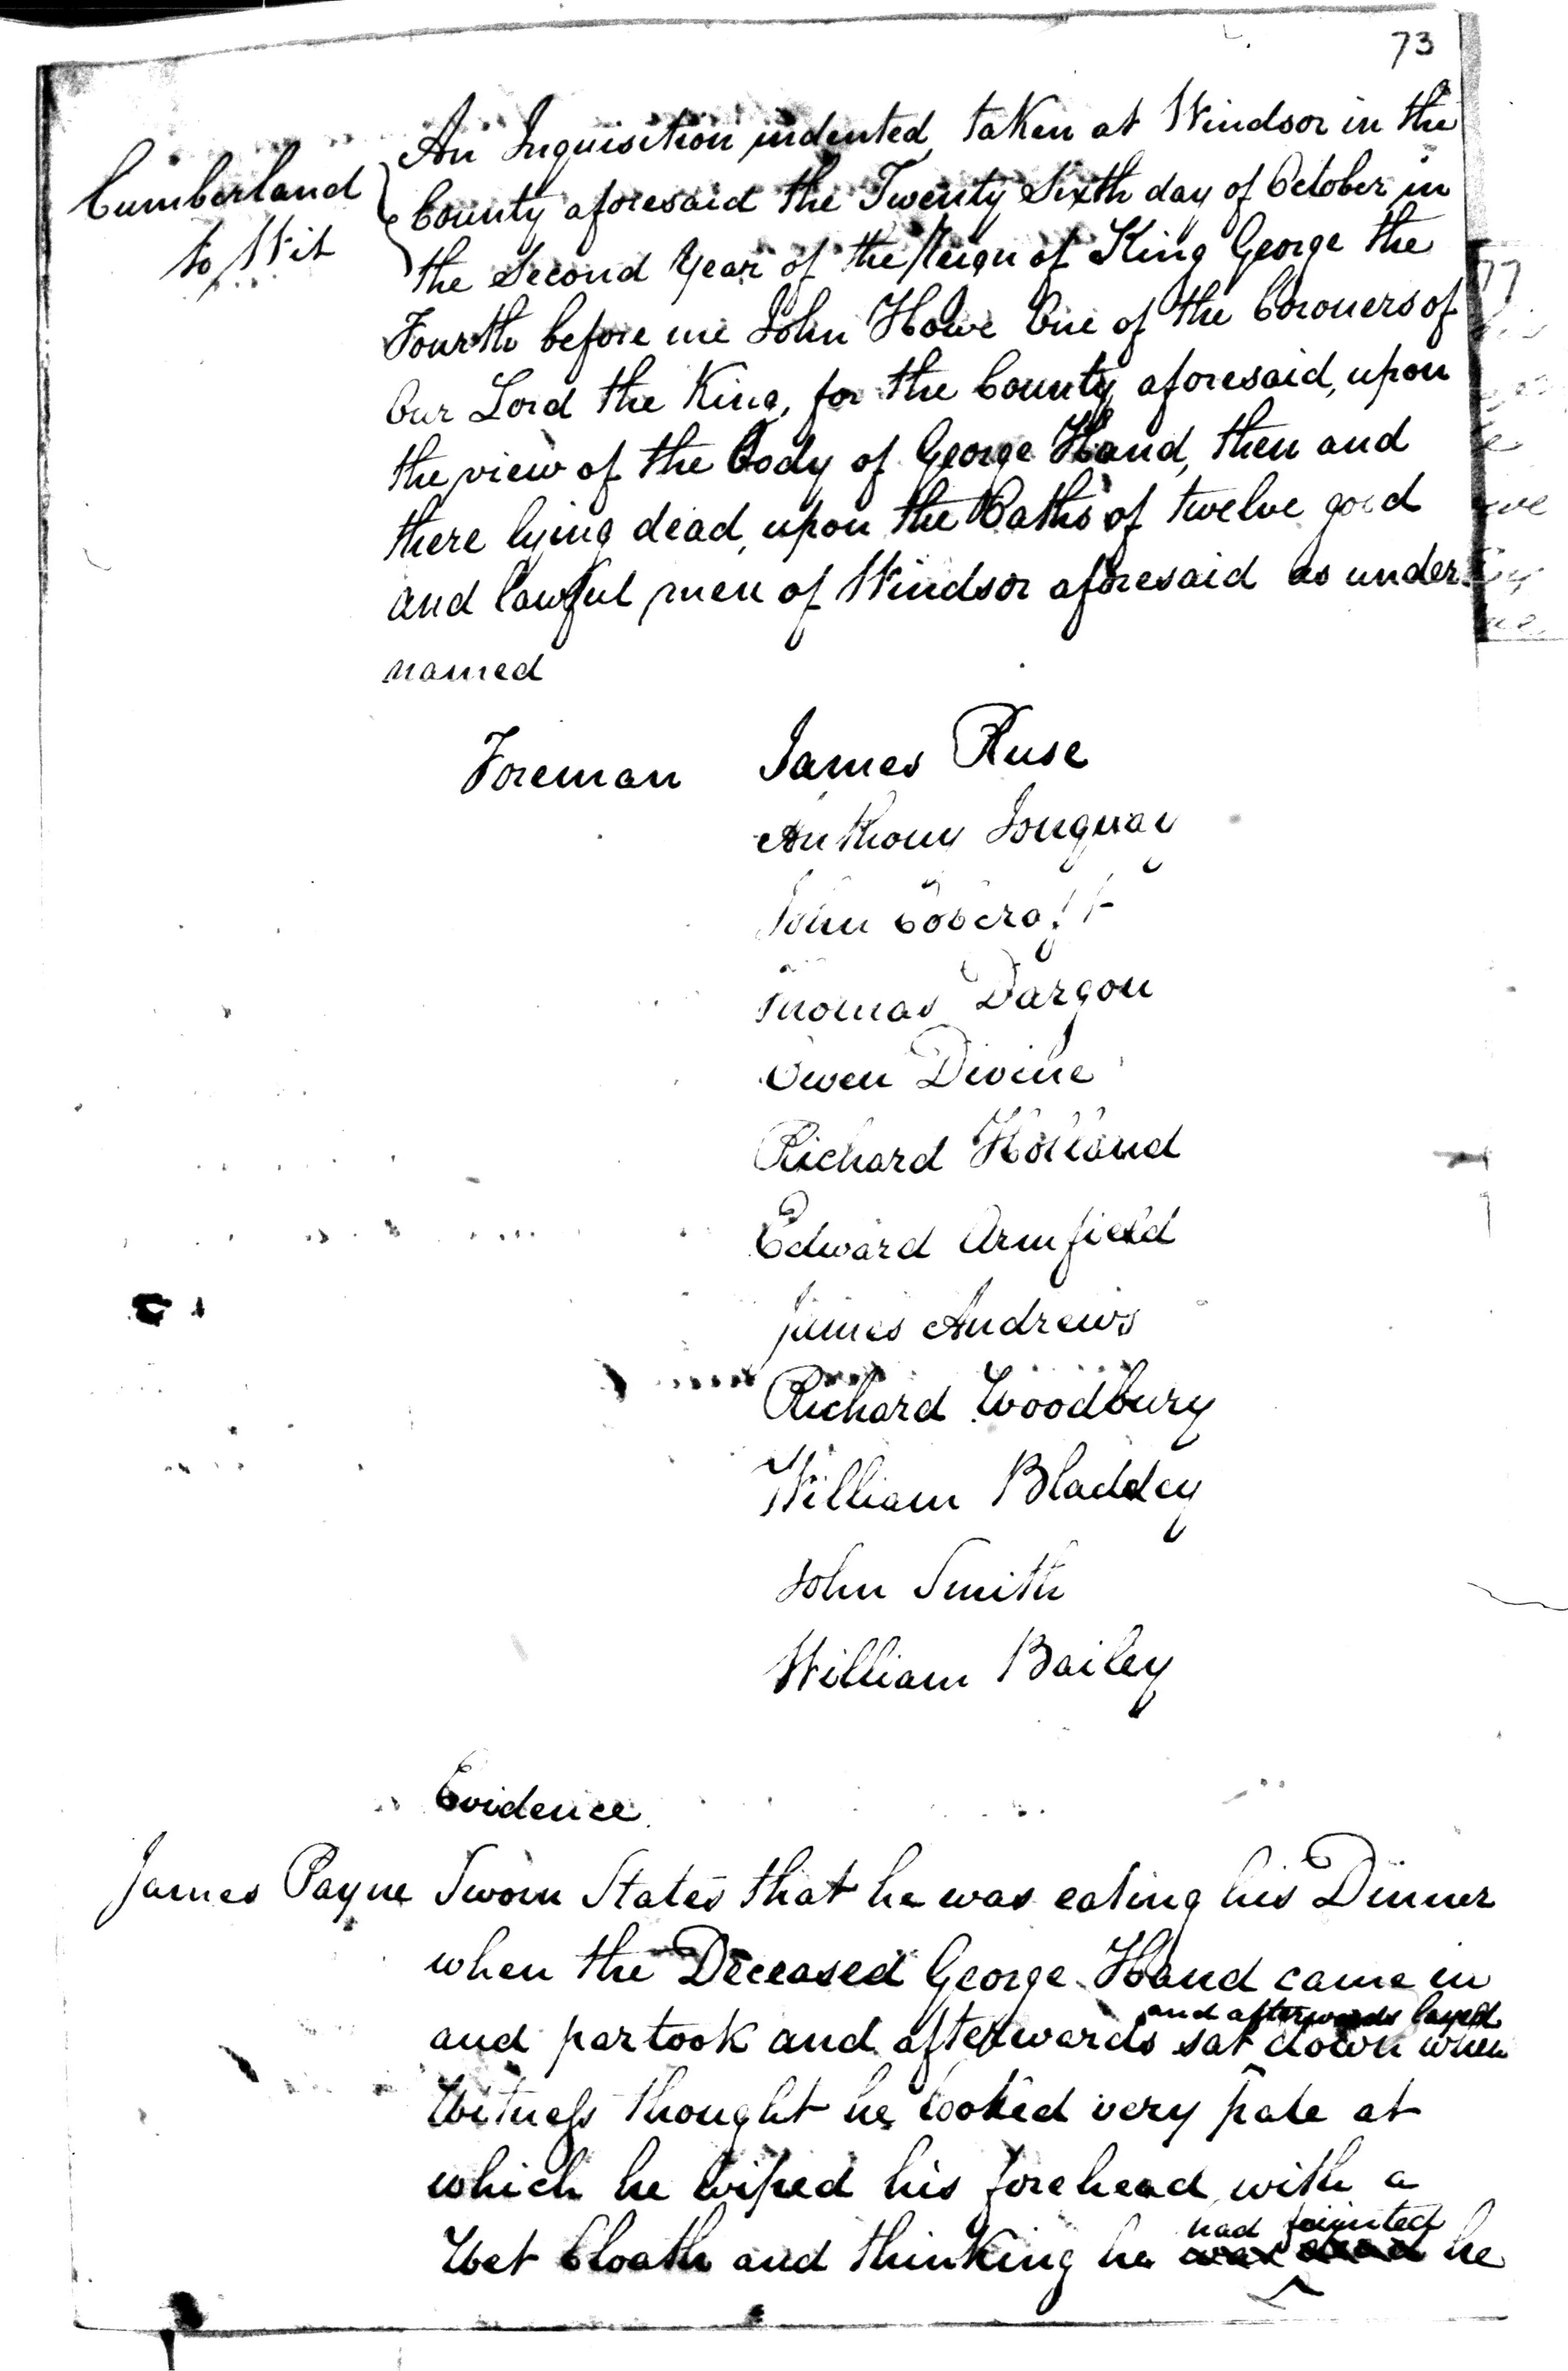 73
Cumberland
to Wit
An Inquisition indented, taken at Windsor in the
County aforesaid the Twenty Sixth day of October in
the Second Year of the Reign of King George the
Fourth before me John Howe One of the Coroners of
Our Lord the King, for the County aforesaid, upon
the view of the Body of George Hand, then and
there lying dead, upon the Oaths of twelve good
and lawful men of Windsor aforesaid as under
named
Foreman James Ruse
Anthony Jonquay
John Cobcroft
Thomas Dargon
Owen Divine
Richard Holland
Edward Armfield
James Andrews
Richard Woodbury
William Bladdey
John Smith
William Bailey
Evidence
James Payne Sworn States that he was eating his Dinner
when the Deceased George Hand came in
and afterwards layed
and partook and afterwards sat down when
Witness thought he looked very pale at
which he wiped his forehead with a
had fainted
Wet Cloath and thinking he was dead he